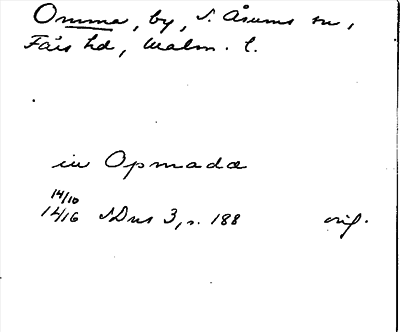 Omma, by, S. Åsums sn,
Färs hd, Malm. l.
in Opmadæ
14/10
1416 SDns 3, s. 188 orig.